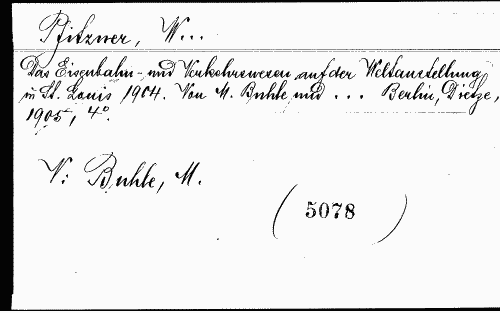 Pfitzner, W...
Das Eisenbahn- und Verkehrswesen auf der Weltaustellung
in St. Louis 1904. Von M. Buhle und ... Berlin, Dietze,
1905, 4°.
V: Buhle, M.
(5078)